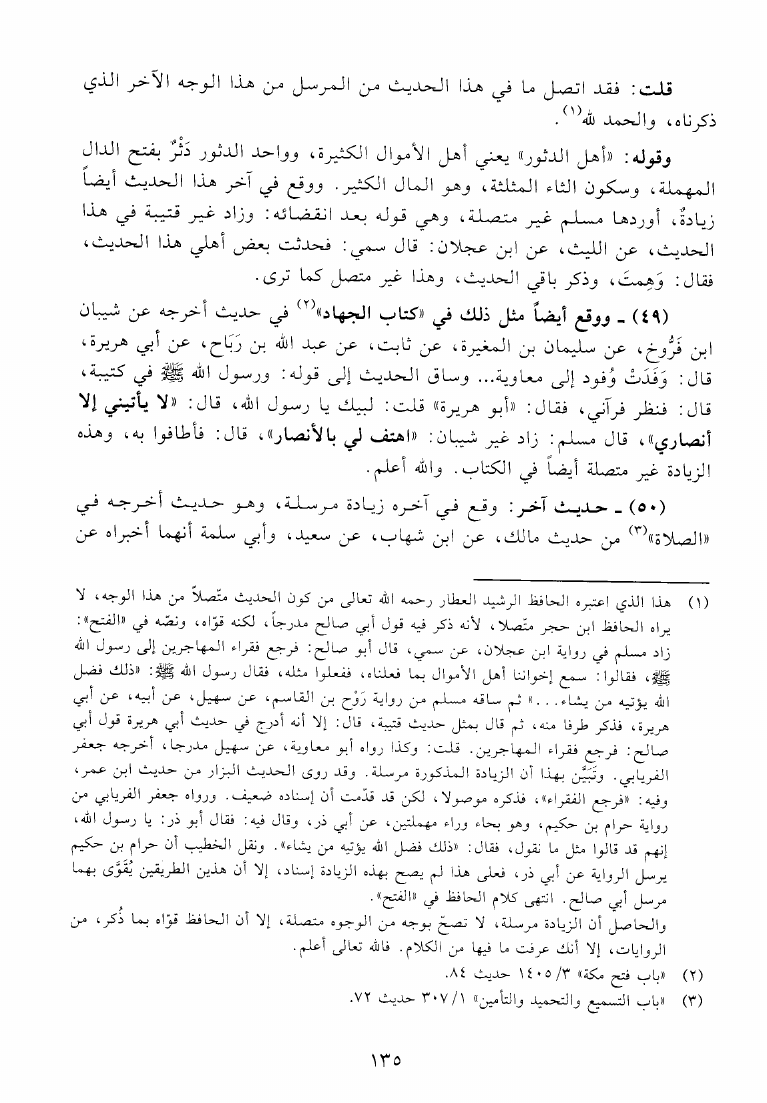 قلت: فقد اتصل ما في هذا الحديث من المرسل من هذا الوجه الآخر الذي
ذكرناه، والحمد لله(١).
وقوله: «أهل الدثور» يعني أهل الأموال الكثيرة، وواحد الدثور دَثْرٌ بفتح الدال
المهملة، وسكون الثاء المثلثة، وهو المال الكثير. ووقع في آخر هذا الحديث أيضاً
زيادةٌ، أوردها مسلم غير متصلة، وهي قوله بعد انقضائه: وزاد غير قتيبة في هذا
الحديث، عن الليث، عن ابن عجلان: قال سمي: فحدثت بعض أهلي هذا الحديث،
فقال: وَهِمتَ، وذكر باقي الحديث، وهذا غير متصل كما ترى.
(٤٩) ـ ووقع أيضاً مثل ذلك في «كتاب الجهاد»(٢) في حديث أخرجه عن شيبان
ابن فَرُّوخ، عن سليمان بن المغيرة، عن ثابت، عن عبد الله بن رَبَاح، عن أبي هريرة،
قال: وَفَدَتْ وُفود إلى معاوية... وساق الحديث إلى قوله: ورسول الله ﷺ في كتيبة،
قال: فنظر فرآني، فقال: «أبو هريرة» قلت: لبيك يا رسول الله، قال: «لا يأتيني إلا
أنصاري»، قال مسلم: زاد غير شيبان: «اهتف لي بالأنصار»، قال: فأطافوا به، وهذه
الزيادة غير متصلة أيضاً في الكتاب. والله أعلم.
(٥٠) ـ حديث آخر: وقع في آخره زيادة مرسلة، وهو حديث أخرجه في
«الصلاة»(٣) من حديث مالك، عن ابن شهاب، عن سعيد، وأبي سلمة أنهما أخبراه عن
(١) هذا الذي اعتبره الحافظ الرشيد العطار رحمه الله تعالى من كون الحديث متّصلاً من هذا الوجه، لا
يراه الحافظ ابن حجر متّصلا، لأنه ذكر فيه قول أبي صالح مدرجاً، لكنه قوّاه، ونصّه في «الفتح»:
زاد مسلم في رواية ابن عجلان، عن سمي، قال أبو صالح: فرجع فقراء المهاجرين إلى رسول الله
ﷺ، فقالوا: سمع إخواننا أهل الأموال بما فعلناه، ففعلوا مثله، فقال رسول الله ﷺ: «ذلك فضل
الله يؤتيه من يشاء...» ثم ساقه مسلم من رواية رَوْح بن القاسم، عن سهيل، عن أبيه، عن أبي
هريرة، فذكر طرفا منه، ثم قال بمثل حديث قتيبة، قال: إلا أنه أدرج في حديث أبي هريرة قول أبي
صالح: فرجع فقراء المهاجرين. قلت: وكذا رواه أبو معاوية، عن سهيل مدرجا، أخرجه جعفر
الفريابي. وتَبَيَّن بهذا أن الزيادة المذكورة مرسلة. وقد روى الحديث البزار من حديث ابن عمر،
وفيه: «فرجع الفقراء»، فذكره موصولا، لكن قد قدّمت أن إسناده ضعيف. ورواه جعفر الفريابي من
رواية حرام بن حكيم، وهو بحاء وراء مهملتين، عن أبي ذر، وقال فيه: فقال أبو ذر: يا رسول الله،
إنهم قد قالوا مثل ما نقول، فقال: «ذلك فضل الله يؤتيه من يشاء». ونقل الخطيب أن حرام بن حكيم
يرسل الرواية عن أبي ذر، فعلى هذا لم يصح بهذه الزيادة إسناد، إلا أن هذين الطريقين يُقَوَّى بهما
مرسل أبي صالح. انتهى كلام الحافظ في «الفتح».
والحاصل أن الزيادة مرسلة، لا تصحّ بوجه من الوجوه متصلة، إلا أن الحافظ قوّاه بما ذُكر، من
الروايات، إلا أنك عرفت ما فيها من الكلام. فالله تعالى أعلم.
(٢) «باب فتح مكة» ٣/ ١٤٠٥ حديث ٨٤.
(٣) «باب التسميع والتحميد والتأمين» ١/ ٣٠٧ حديث ٧٢.
١٣٥